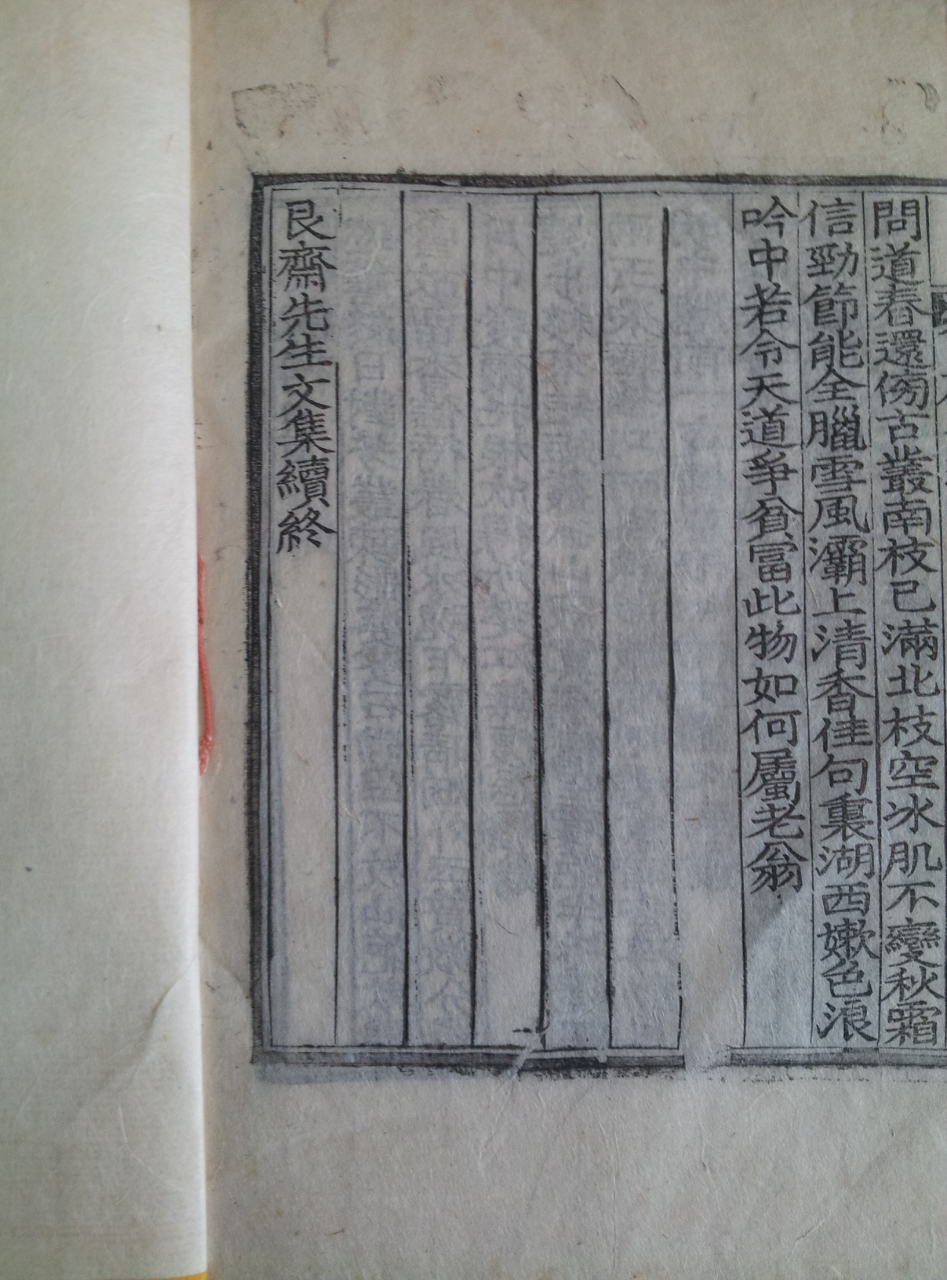 問道春還傍古叢南枝已滿北枝空冰肌不變秋霜
信勁節能全臘雪風灞上清香佳句裏湖西嫰色浪
吟中若令天道爭貧富此物如何屬老翁
艮齋先生文集續終